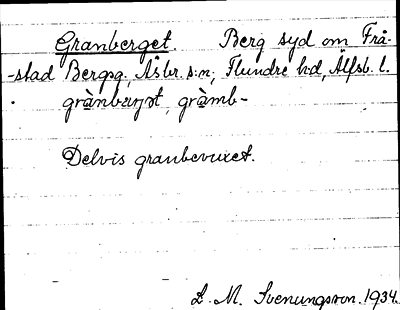 Granberget. Berg syd om Frå-
-stad Bergpg; Åsbr. s:n; Flundre h:d, Älfsb. l.
grànbærjət, gràmb-
Delvis granbevuxet.
L. M. Svenungsson. 1934.